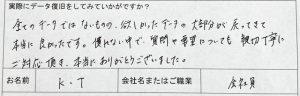 実際にデータ復旧をしてみていかがですか?
全てのデータではないものの、欲しかったデータの大部分が戻ってきて
本当に良かったです。慣れない中で、質問や要望についても親切丁寧に
ご対応頂き、本当にありがとうございました。
お名前 K.T 会社名またはご職業 会社員